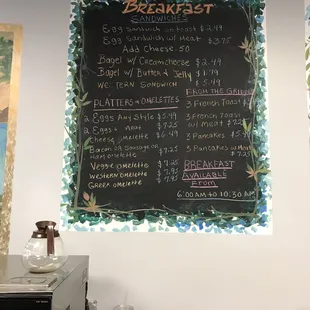 Breakfast
SANDWICHES
Egg Sandwich on toast $2.49
Egg Sandwich w/ Meat $3.75
Add Cheese .50
Bagel w/ Creamcheese $2.49
Bagel w/ Butter & Jelly $1.79
Western Sandwich $5.49
PLATTERS & OMELETTES
2 Eggs Any Style $5.49
2 Eggs + Meat $7.25
Cheese Omelette $6.49
Bacon or Sausage or
Ham Omelette $7.25
Veggie Omelette $7.25
Western Omelette $7.95
Omelette $7.95
FROM THE GRIDDLE
3 French Toast
3 French Toast
w/ Meat $7.25
3 Pancakes $5.
3 Pancakes w/ Meat
$7.25
BREAKFAST
AVAILABLE
From
6:00 AM to 10:30 AM